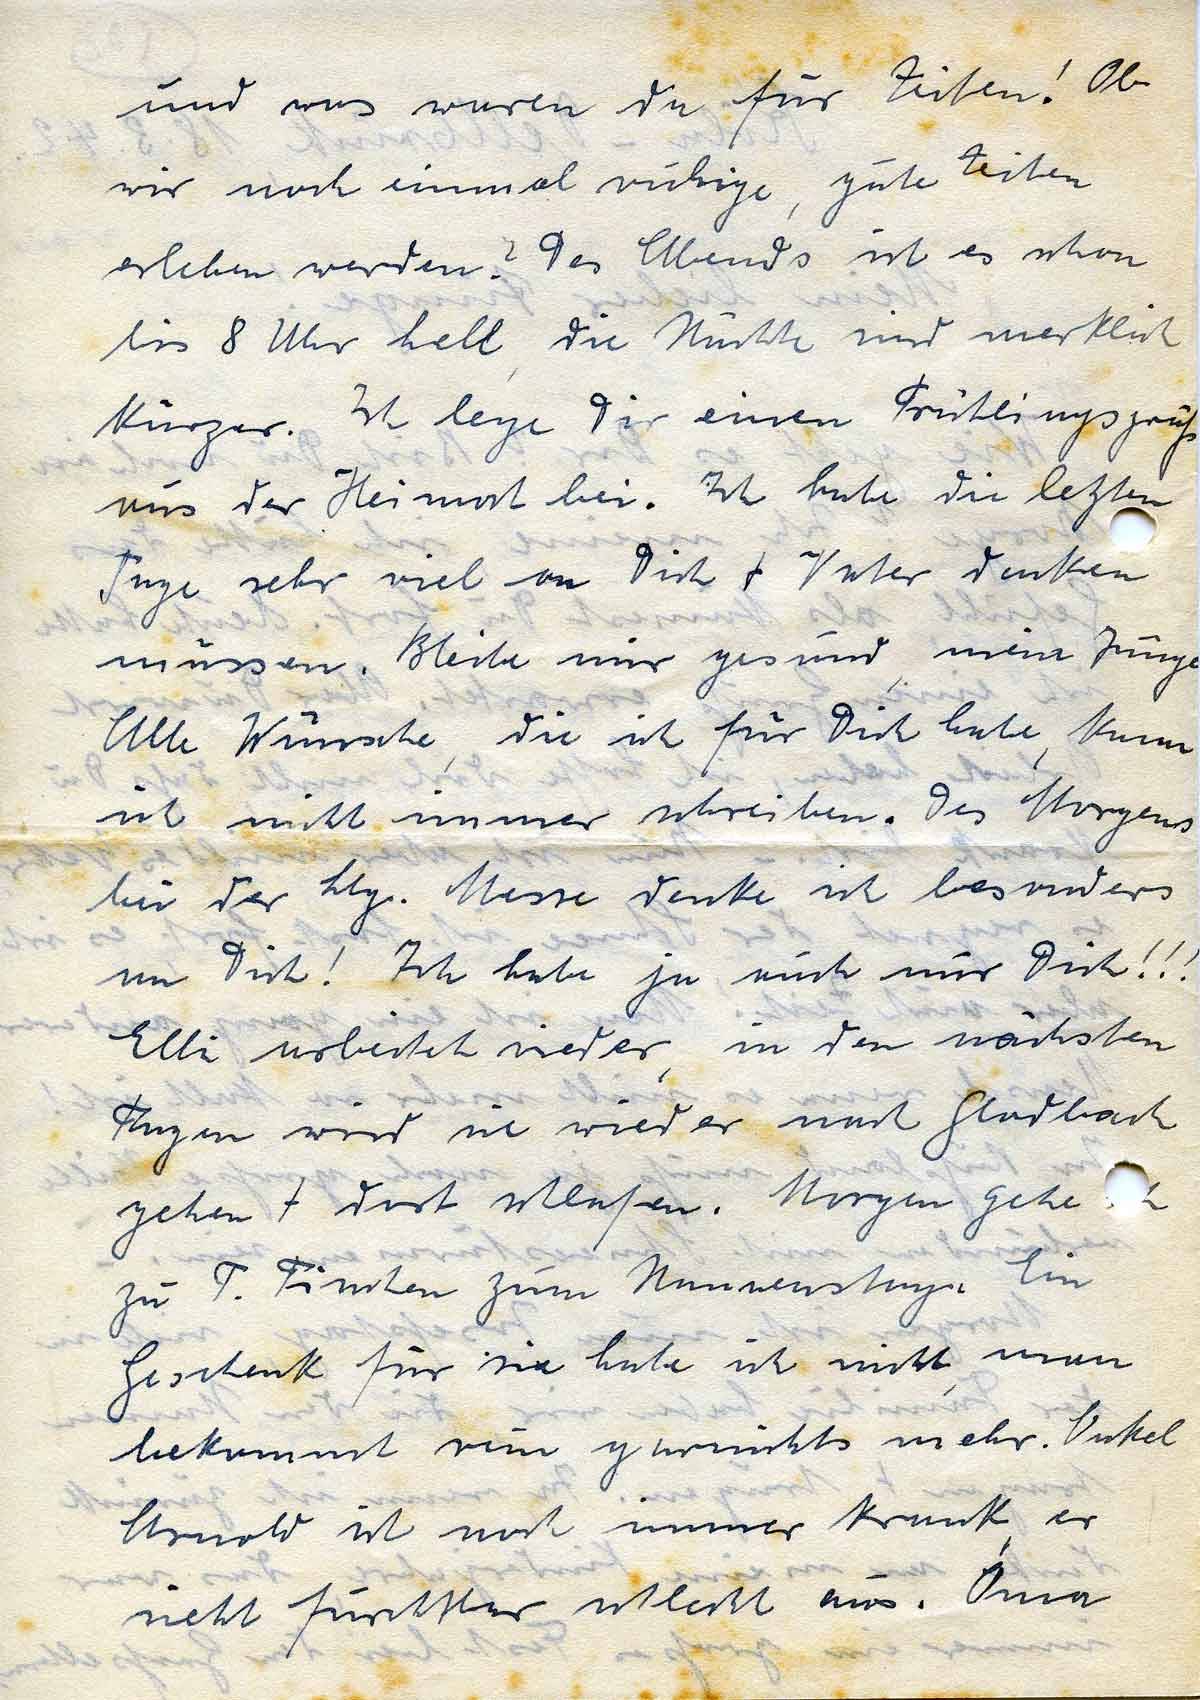 und was waren da für Zeiten! Ob
wir noch einmal ruhige, gute Zeiten
erleben werden? Des Abends ist es schon
bis 8 Uhr hell, die Nächte sind merklich
kürzer. Ich lege Dir einen Frühlingsgruß
aus der Heimat bei. Ich habe die letzten
Tage sehr viel an Dich + Vater denken
müssen. Bleibe mir gesund, mein Junge
Alle Wünsche, die ich für Dich habe, kann
ich nicht immer schreiben. Des Morgens
bei der hlg. Messe denke ich besonders
an Dich! Ich habe ja auch nur Dich!!!
Elli arbeitet wieder, in den nächsten
Tagen wird sie wieder nach Gladbach
gehen + dort schlafen. Morgen gehe ich
zu T. Finchen zum Namenstag. Ein
Geschenk für sie habe ich nicht, man
bekommt rein garnichts mehr. Onkel
Arnold ist noch immer krank, er
sieht furchtbar schlecht aus. Oma